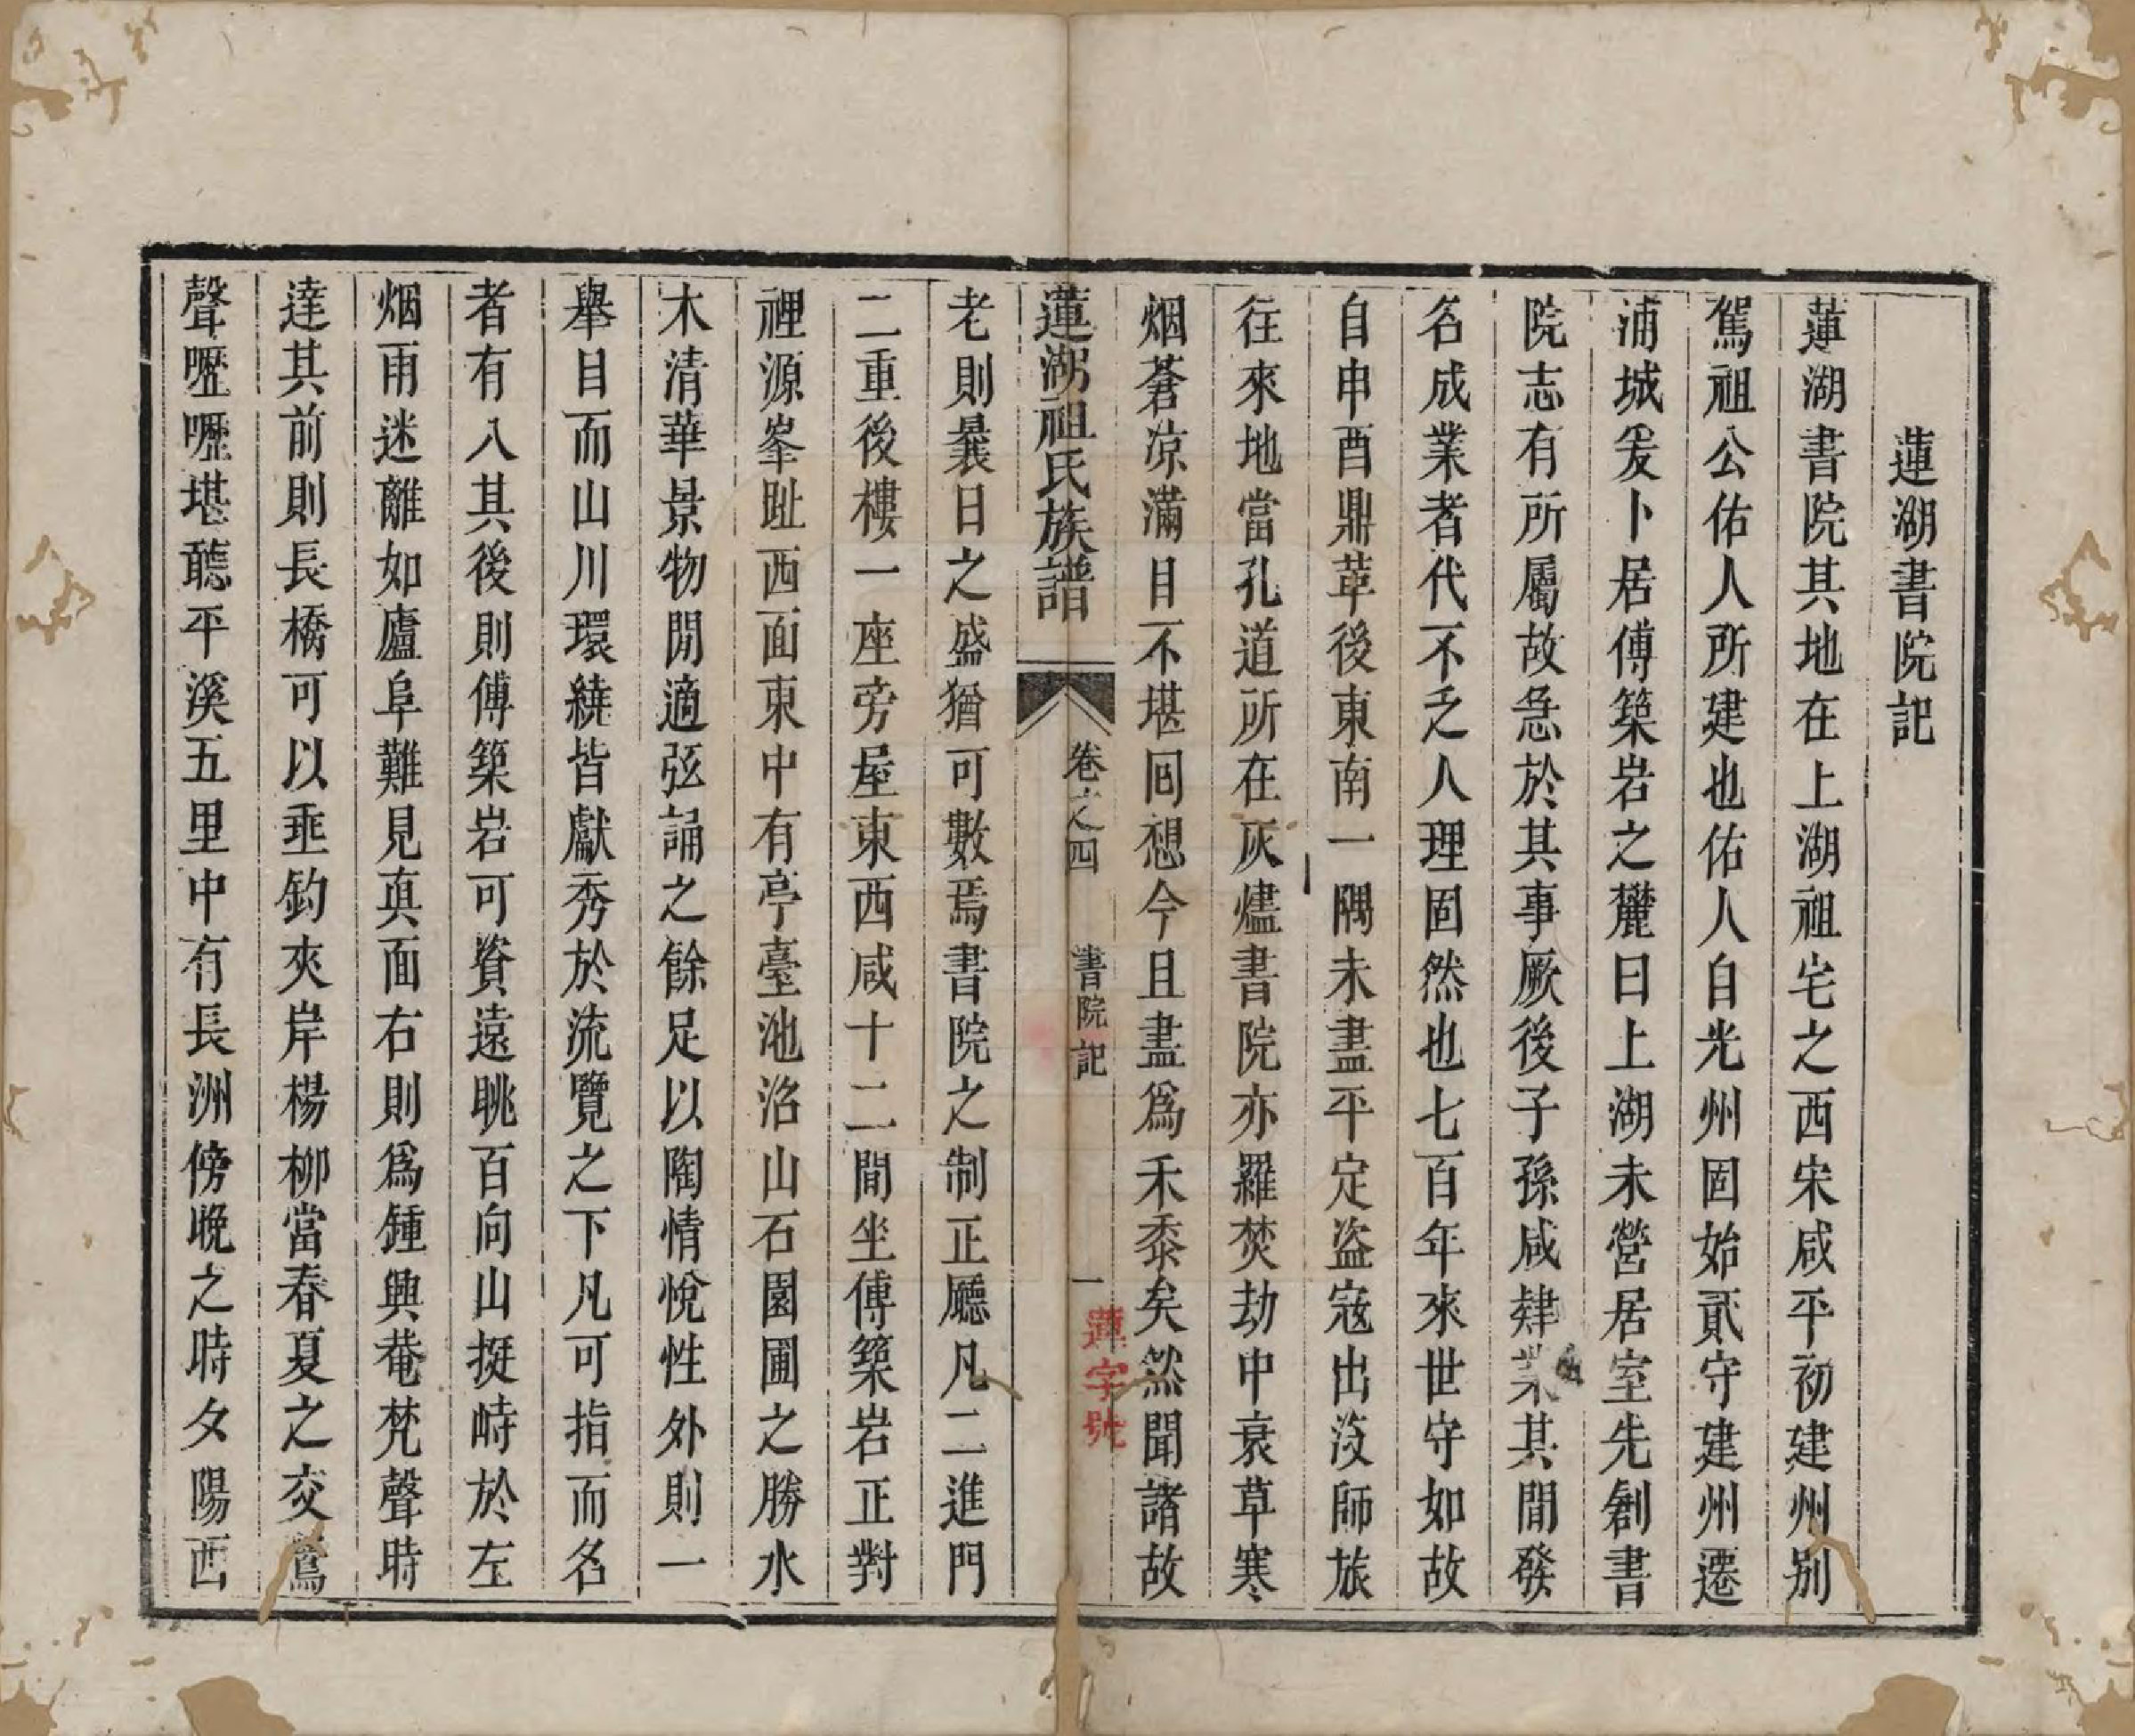 蓮湖書院記
蓮湖書院其地在上湖祖宅之西宋咸平初建州别
駕祖公佑人所建也佑人自光州固始貳守建州遷
浦城爰卜居傅築岩之麓曰上湖未營居室先創書
院志有所屬故急於其事厥後子孫咸肄業其間發
名成業者代不乏人理固然也七百年來世守如故
自申酉鼎革後東南一隅未盡平定盜寇出没師旅
往來地當孔道所在灰燼書院亦羅焚劫中衰草寒
烟蒼凉滿目不堪回想今且盡爲禾黍矣然聞諸故
蓮湖祖氏族譜 卷之四 書院記 一 蓮字號
老則曩日之盛猶可數焉書院之制正廳凡二進門
二重後樓一座旁屋東西咸十二間坐傅築岩正對
裡源峯趾西面東中有亭臺池沼山石園圃之勝水
木清華景物閒適弦誦之餘足以陶情悅性外則一
舉目而山川環繞皆獻秀於流覽之下凡可指而名
者有八其後則傅築岩可資遠眺百向山挺峙於左
烟雨迷離如廬阜難見真面右則爲鍾興菴梵聲時
達其前則長橋可以垂釣夾岸楊柳當春夏之交鶯
聲嚦嚦堪聽平溪五里中有長洲傍晚之時夕陽西